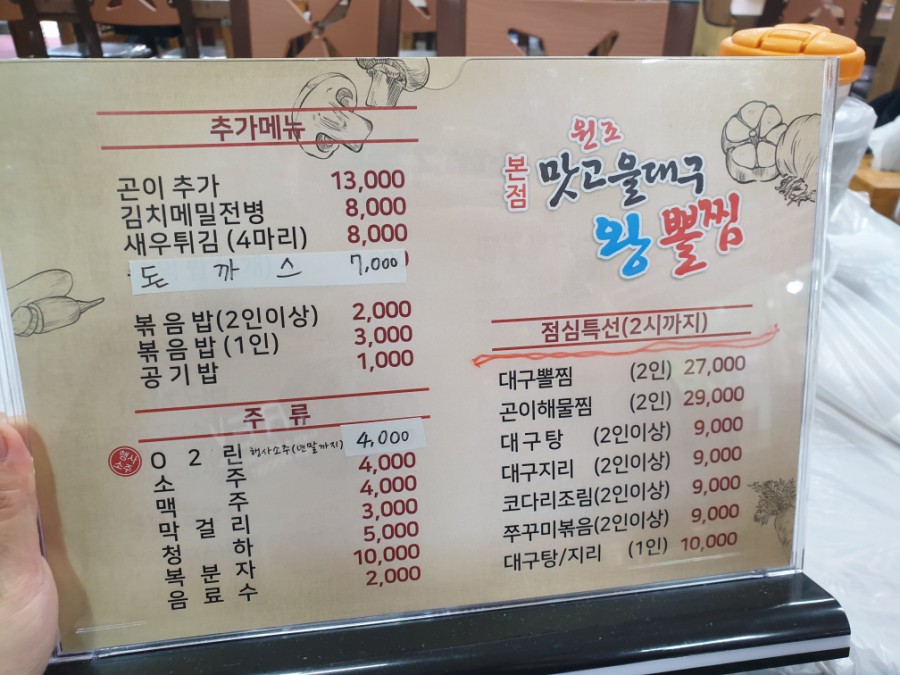 추가메뉴
곤이 추가 13,000
김치메밀전병 8,000
새우튀김 (4마리) 8,000
돈까스 7,000
볶음밥(2인이상) 2,000
볶음밥 (1인) 3,000
공기밥 1,000
주 류
행사소주 O 2 린 행사소주(년말까지) 4,000
소 주 4,000
맥 주 4,000
막 걸 리 3,000
청 하 5,000
복 분 자 10,000
음 료 수 2,000
본점 원조
맛고을대구
왕뽈찜
점심특선(2시까지)
대구뽈찜 (2인) 27,000
곤이해물찜 (2인) 29,000
대구탕 (2인이상) 9,000
대구지리 (2인이상) 9,000
코다리조림(2인이상) 9,000
쭈꾸미볶음(2인이상) 9,000
대구탕/지리 (1인) 10,000